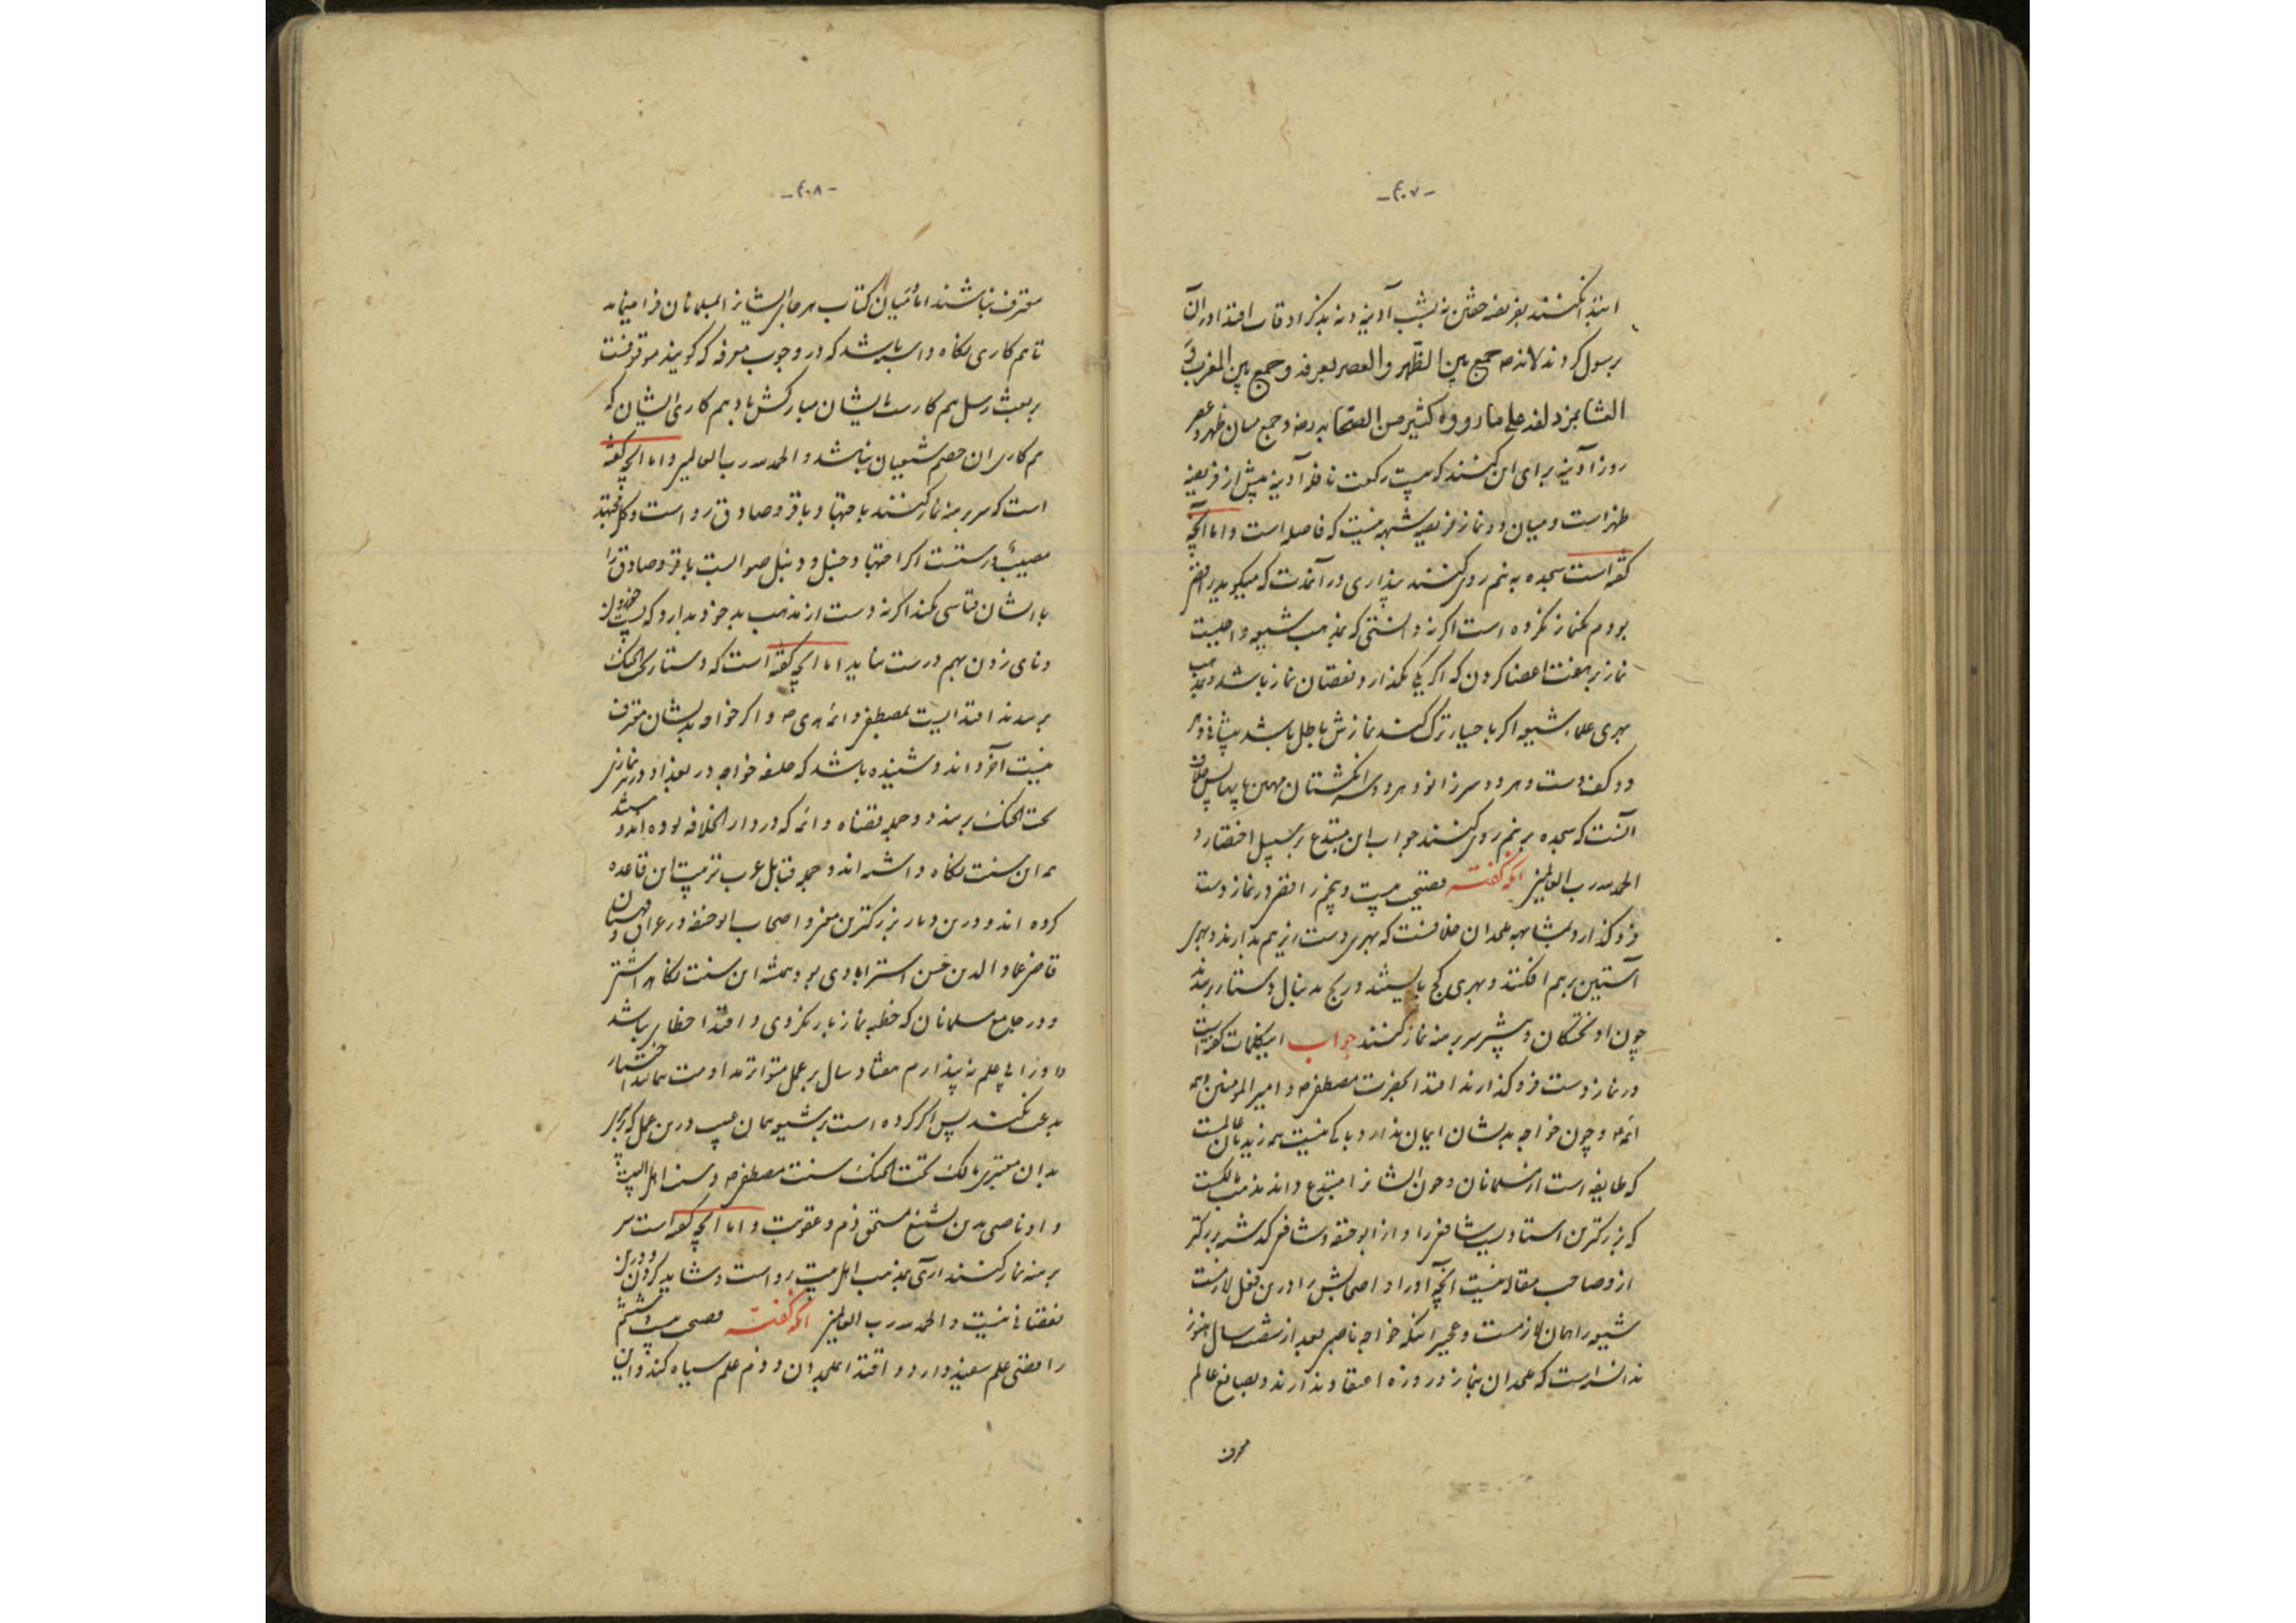 -۴۰۷-
ابتدا نکنند بفریضه خفتن نه بشب آدینه و نه بدیگر اوقات اقتدا در آن
برسول کردند لانه ص جمع بین الظهر والعصر بعرفه و جمع بین المغرب و
العشا بمزدلفه علی ما رووه کثیر من الصحابه رضه و جمع میان ظهر و عصر
روز آدینه برای این کنند که بیست رکعت نافله آدینه پیش از فریضه
ظهر است و میان دو نماز فریضه شبهه نیست که فاصله است و اما آنچه
گفته است سجده به پنج روی کنند پنداری در آنمدت که میگوید رافضی
بودم یکنماز نکرده است اگر نه دانستی که بمذهب شیعه واجبست
نماز بر هفت اعضا کردن که اگر یکی بگذارد نقصان نماز باشد و بمذهب
بهری علماء شیعه اگر باختیار ترک کند نمازش باطل باشد پیشانی و هر
دو کف دست و هر دو سر زانو و هر دو سر انگشتان مهین پایها پس خلاف
آنست که سجده بر پنج روی کنند جواب این مبتدع بر سبیل اختصار و
الحمدلله رب العالمین آنکه گفته فضیحت بیست و پنجم رافضی در نماز دست
فرو گذارد و مشابهه ملحدان خلافست که بهری دست زیر هم ندارند و بهری
آستین بر هم افکنند و بهری کج بایستند و ریح بدنبال دستار ربندند
چون آویختگان و بیشتر سر برهنه نماز کنند جواب این کلمات گفته است
در نماز دست فرو گذارند اقتدا بحضرت مصطفی ص و امیر المؤمنین و همه
ائمه و چون خواجه بدیشان ایمان ندارد باکی نیست همه زیدیان عالمست
که طایفه است از مسلمانان و چون ایشانرا مبتدع داند مذهب مالکست
که بزرگترین استادیست شافعی را و از ابو حنیفه و شافعی گذشته بزرگتر
ازو صاحب مقاله نیست آنچه او را و اصحابش را درین فعل لازمست
شیعه را همان لازمست و عجیر اینکه خواجه ناصبی بعد از شصت سال هنوز
ندانسته است که ملحدان بنماز و روزه اعتقاد ندارند و بصانع عالم
معترف
-۴۰۸-
معترف نباشند اما میان کتاب هر جای ایشانرا بمسلمانان فرا مینماید
تا هم کاری نگاه داشته باشد که در وجوب معرفه که گویند موقوفست
بر بعثت رسل هم کار ست با ایشان مبارکش باد هم کاری ایشان که
هم کار ایران خصم شیعیان نباشد و الحمدلله رب العالمین و اما آنچه گفته
است که سر برهنه نماز کنند باجتهاد باقر و صادق رواست و کل مجتهد
مصیب درستست اگر اجتهاد حنبل و ذنبل صوابست باقر و صادق را
با ایشان قیاسی بکند اگر نه دست از مذهب بد خود بدارد که
و نای زدن بهم درست نیاید اما آنچه گفته است که دستار تحت الحنک
بر بندند اقتدا یست بمصطفی و ائمه هدی ص و اگر خواجه بدیشان معترف
نیست آخر داند و شنیده باشد که خلیفه خواجه در بغداد در هر نمازی
تحت الحنک بر بندد و جمله قضاه و ائمه که در دار الخلافه بوده اند
هم این سنت نگاه داشته اند و جمله قبایل عرب ترتیب این قاعده
کرده اند و درین دیار بزرگترین مفخر اصحاب ابو حنیفه در عراق و قهستان
قاضی عماد الدین حسن استرابادی بود همیشه این سنت نگاه داشتی
و در جامع مسلمانان که خطبه نماز بار نکردی و اقتدا خطا نباشد
و از آن عالم نه پندارم هفتاد سال بر عمل متواتر مداومت نماید اختیار
بدعت نکند پس اگر کرده است بر شیعه همان عیب درین عمل که
بدان معتبری مالک تحت الحنک سنت مصطفی ص و سنت اهل البیت
و او ناصبی بدین تشنیع مستحق ذم و عقوبت و اما آنچه گفته است سر
برهنه نماز کنند آری بمذهب اهل بیت رواست و شاید کردن و درین
نقصانی نیست و الحمدلله رب العالمین آنکه گفته فضیحت بیست و ششم
رافضی علم سفید دارد و اقتدا بملحدان و ذم علم سیاه کند و این